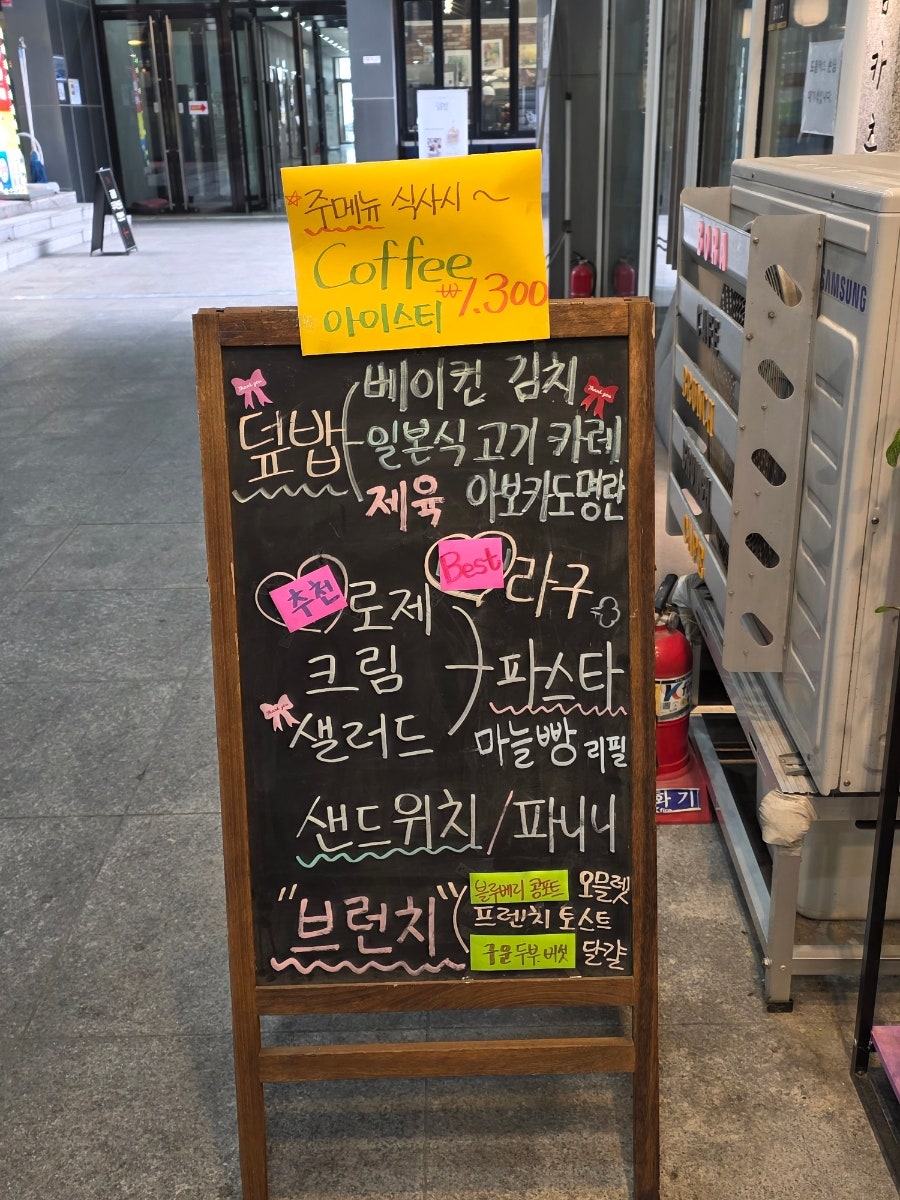 주메뉴 식사시 ~
Coffee
아이스티 ₩1.300
베이컨 김치
덮밥 일본식 고기 카레
제육 아보카도명란
추천 로제 Best 라구
크림 파스타
샐러드 마늘빵 리필
샌드위치 / 파니니
"브런치" 블루베리 콩포트 오믈렛
프렌치 토스트
구운 두부.버섯 달걀
BORA
SAMSUNG
화기